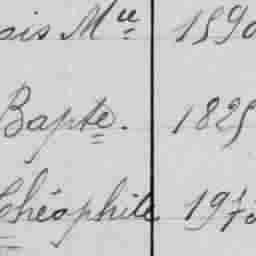 ois Mce 1890
Bapte. 1825
Théophile